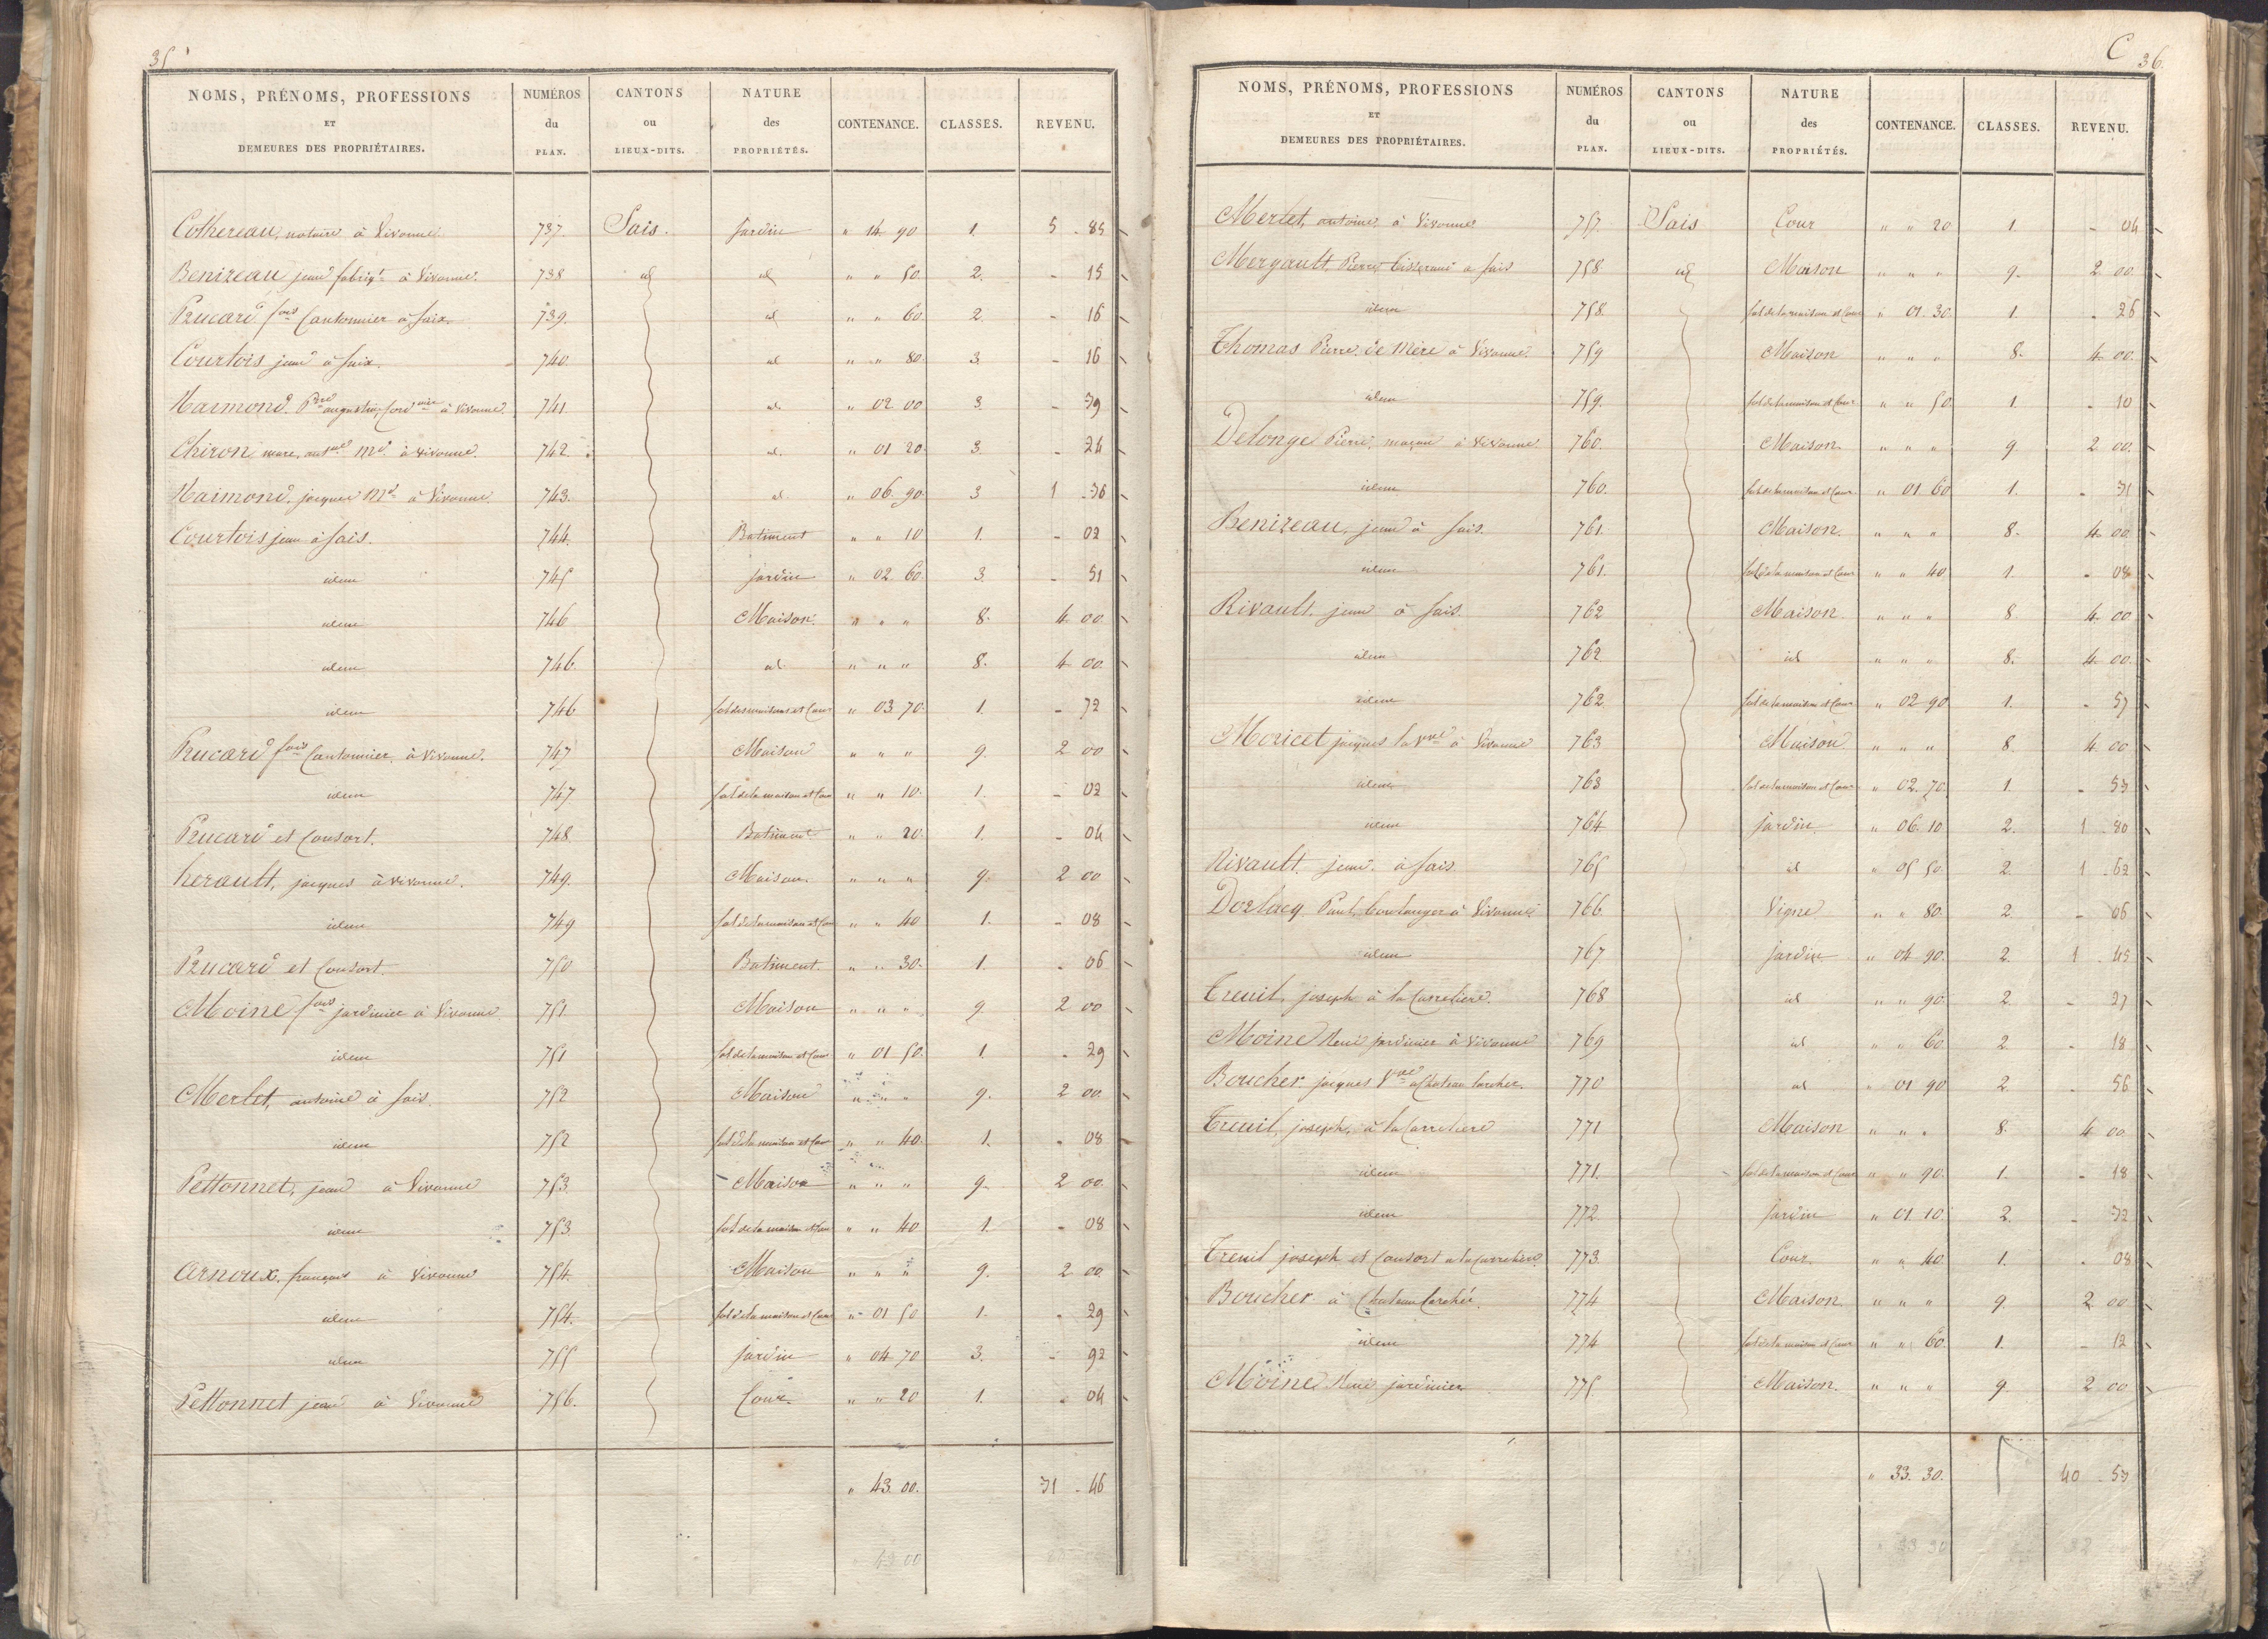 35
NOMS, PRÉNOMS, PROFESSIONS ET DEMEURES DES PROPRIÉTAIRES. NUMÉROS du PLAN. CANTONS ou LIEUX-DITS. NATURE des PROPRIÉTÉS. CONTENANCE. CLASSES. REVENU.
Cothereau, notaire à Vivonne 737. Sais. Jardin " 14 90 1. 5 - 85
Benizeau jean fabriqt à Vivonne. 738 id id " " 50. 2. - 15
Brucard fois Cantonnier à Saix. 739. id " " 60 2. - 16
Courtois jean à Saix. 740. id " " 80. 3. - 16
Naimond. Pre augustin, cordnier à Vivonne. 741. id. " 02 00 3. - 39
Chiron marc, antne Md. à Vivonne. 742. id. " 01 20. 3. - 24
Naimond, jacques Md à Vivonne 743. id. " 06. 90. 3 1 - 36
Courtois jean à Sais. 744. Batiment " " 10 1. - 02
idem 745 jardin " 02 60. 3. - 51
idem 746 Maison. " " " 8. 4 00.
idem 746. id. " " " 8. 4 00.
idem 746 sol des maisons et Cour " 03. 70. 1. - 72
Brucard fois Cantonnier à Vivonne. 747 Maison " " " 9. 2 00
idem 747 sol de la maison et Cour " " 10. 1. - 02
Brucard et Consort. 748. Batiment " " 20. 1. - 04
herault, jacques à Vivonne. 749. Maison. " " " 9. 2 00
idem 749 sol de la maison et Cour " " 40 1. - 08
Brucard et Consort. 750 Batiment. " " 30. 1. - 06
Moine fois jardinier à Vivonne. 751 Maison " " " 9 2 00
idem 751 sol de la maison et Cour " 01 50. 1. - 29
Merlet, antoine à Sais. 752 Maison " " " 9. 2 00
idem 752 sol de la maison et Cour " " 40. 1. - 08
Pettonnet, jean à Vivonne 753. Maison " " " 9. 2 00.
idem 753. sol de la maison et Cour " " 40 1. - 08
Arnoux, françois à Vivonne 754. Maison " " " 9. 2 00.
idem 754. sol de la maison et Cour " 01 50 1. - 29
idem 755 Jardin " 04 70 3. - 92
Pettonnet jean à Vivonne 756. Cour. " " 20 1. - 04
" 43. 00. 31 - 46
43 00
C 36.
NOMS, PRÉNOMS, PROFESSIONS ET DEMEURES DES PROPRIÉTAIRES. NUMÉROS du PLAN. CANTONS ou LIEUX-DITS. NATURE des PROPRIÉTÉS. CONTENANCE. CLASSES. REVENU.
Merlet, antoine, à Vivonne 757. Sais Cour " " 20 1. - 04
Mergault, Pierre tisserand à Sais 758. id Maison " " " 9. 2 00.
idem 758. sol de la maison et Cour " 01. 30. 1. - 26
Thomas Pierre de Mère à Vivonne. 759 Maison " " " 8. 4 00.
idem 759. sol de la maison et Cour " " 50. 1. - 10
Delonge Pierre, maçon à Vivonne. 760. Maison. " " " 9. 2 00.
idem 760. sol de la maison et Cour " 01 60 1. - 31
Benizeau, jean à Sais. 761. Maison. " " " 8. 4 00
idem 761. sol de la maison et Cour " " 40 1. - 08
Rivault, jean à Sais. 762 Maison " " " 8. 4 00
idem 762 id " " " 8. 4 00.
idem 762 sol de la maison et Cour " 02 90 1. - 57
Moricet jacques la Vve à Vivonne 763 Maison " " " 8. 4 00
idem 763 sol de la maison et Cour " 02. 70. 1 - 53
idem 764 jardin " 06. 10 2. 1 - 80
Rivault. jean. à Sais 765 id " 05 50. 2. 1 - 62
Dorlacq Paul, boulanger à Vivonne 766 Vigne " " 80. 2 - 06
idem 767 jardin " 04 90. 2. 1 - 45
Treuil, joseph à la Carreliere. 768 id " " 90. 2 - 27
Moine René jardinier à Vivonne 769 id " " 60 2 - 18
Boucher jacques Vve à Chateau larcher. 770 id " 01 90 2 - 56
Treuil, joseph, à la Carreliere 771 Maison " " " 8. 4 00.
idem 771. sol de la maison et Cour " " 90. 1. - 18
idem 772 Jardin " 01 10. 2. - 32
Treuil joseph et Consort à la Carreliere 773. Cour. " " 40. 1. - 08
Boucher à Chateau larcher. 774 Maison. " " " 9. 2 00.
idem 774 sol de la maison et Cour " " 60 1. - 12
Moine, René jardinier 775. Maison. " " " 9. 2 00
" 33. 30. 40 - 53
33 30